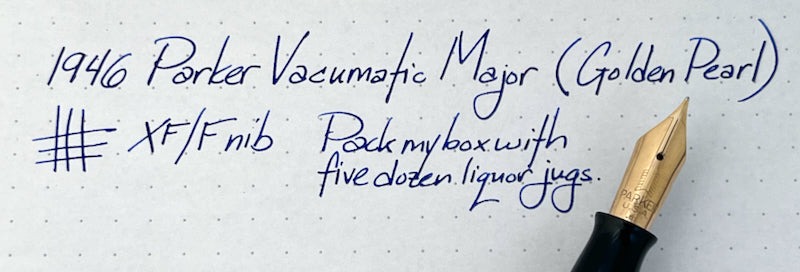 1946 Parker Vacumatic Major (Golden Pearl)
XF/F nib Pack my box with
five dozen liquor jugs.
PARKER
U.S.A.